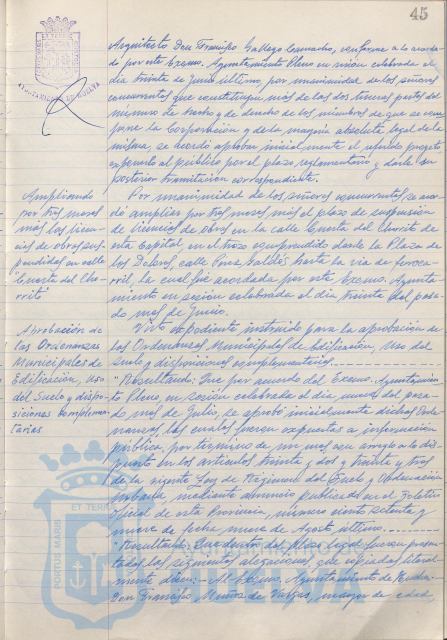 45
AYUNTAMIENTO DE HUELVA
Arquitecto Don Francisco Gallego Camacho, conforme a lo acorda-
do por este Excmo. Ayuntamiento Pleno en sesión celebrada el
día treinta de Junio último, por unanimidad de los señores
concurrentes que constituyen más de las dos terceras partes del
número de hecho y de derecho de los miembros de que se com-
pone la Corporación y de la mayoría absoluta legal de la
misma, se acordó aprobar inicialmente el referido proyecto
exponerlo al público por el plazo reglamentario y darle su
posterior tramitación correspondiente.
Ampliando
por tres meses
más las licen-
cias de obras sus-
pendidas en calle
"Cuesta del Cho-
rrito"
Por unanimidad de los señores concurrentes, se acor-
dó ampliar por tres meses más el plazo de suspensión
de licencias de obras en la calle Cuesta del Chorrito de
esta Capital, en el trozo comprendido desde la Plaza de
los Dolores, calle Pons Valdés hasta la vía de ferroca-
rril, la cual fué acordada por este Excmo. Ayunta-
miento en sesión celebrada el día treinta del pasa-
do mes de Junio.
Aprobación de
las Ordenanzas
Municipales de
Edificación, Uso
del Suelo y dispo-
siciones complemen-
tarias
Visto expediente instruído para la aprobación de
las Ordenanzas Municipales de Edificación, Uso del
Suelo y disposiciones complementarias
"Resultando: Que por acuerdo del Excmo. Ayuntamien-
to Pleno, en sesión celebrada el día nueve del pasa-
do mes de Julio, se aprobó inicialmente dichas Orde-
nanzas, las cuales fueron expuestas a información
pública, por término de un mes, con arreglo a lo dis-
puesto en los artículos treinta y dos y treinta y tres
de la vigente Ley de Régimen del Suelo y Ordenación
Urbana mediante anuncio publicado en el Boletín
Oficial de esta Provincia, número ciento setenta y
nueve de fecha nueve de Agosto último.
"Resultando: Que dentro del plazo legal fueron presen-
tadas las siguientes alegaciones, que copiadas literal-
mente dicen: - Al Excmo. Ayuntamiento de Huelva.
Don Francisco Muñoz de Vargas, mayor de edad,
PORTUS MARIS
ET TERRAE